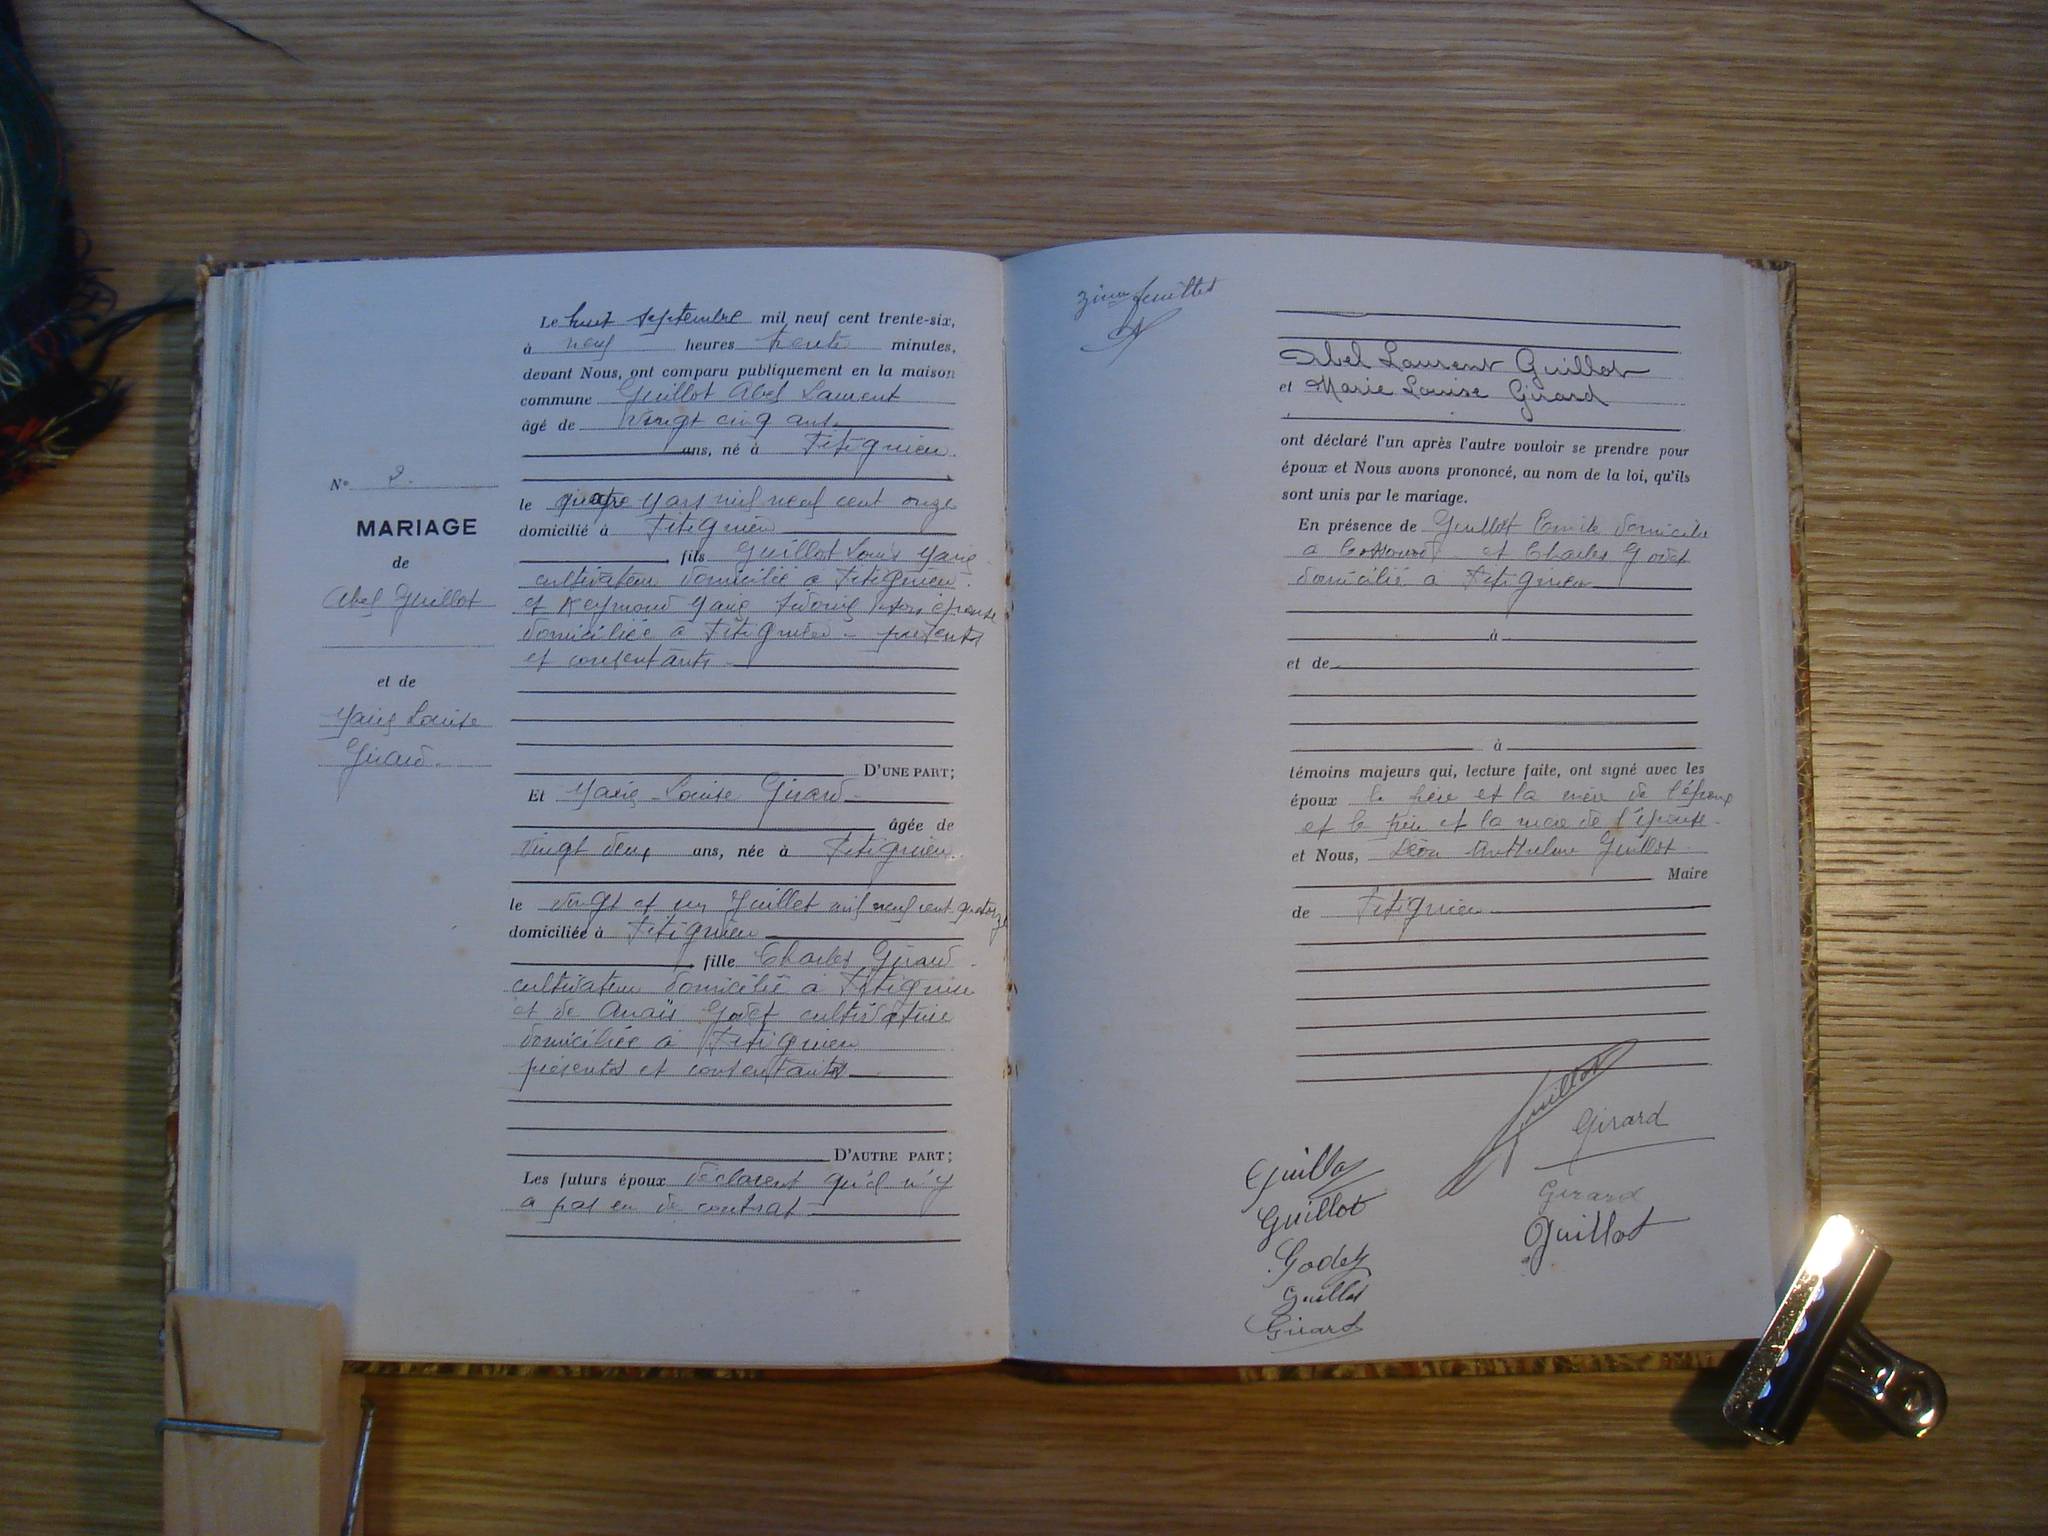 Le huit septembre mil neuf cent trente-six,
à neuf heures trente minutes,
devant Nous, ont comparu publiquement en la maison
commune Guillot Abel Laurent
âgé de vingt cinq ans
ans, né à Fitignieu
N° 2
MARIAGE
de
Abel Guillot
et de
Marie Louise
Girard
le quatre Mars mil neuf cent onze
domicilié à Fitignieu
fils Guillot Louis Marie
cultivateur domicilié à Fitignieu
et Reymond Marie son épouse
domiciliée à Fitignieu - présents
et consentants
D'UNE PART;
Et Marie-Louise Girard
âgée de
vingt deux ans, née à Fitignieu
le vingt et un Juillet mil neuf cent quatorze
domiciliée à Fitignieu
fille Charles Girard
cultivateur domicilié à Fitignieu
et de Anaïs Godet cultivatrice
domiciliée à Fitignieu
présents et consentants
D'AUTRE PART;
Les futurs époux déclarent qu'il n'y
a pas eu de contrat
feuillet
Abel Laurent Guillot
et Marie Louise Girard
ont déclaré l'un après l'autre vouloir se prendre pour
époux et Nous avons prononcé, au nom de la loi, qu'ils
sont unis par le mariage.
En présence de Guillot domicilié
à et Charles Godet
domicilié à Fitignieu
à
et de
à
témoins majeurs qui, lecture faite, ont signé avec les
époux le père et la mère de l'époux
et le père et la mère de l'épouse
et Nous, Léon Anthelme Guillot
Maire
de Fitignieu
Guillot
Girard
Guillot
Girard
Guillot
Guillot
Godet
Guillot
Girard